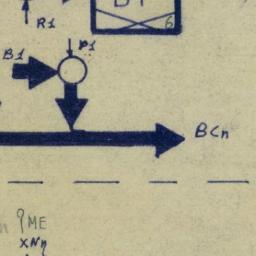 R1
6
B1
P1
BCn
ME
XNn